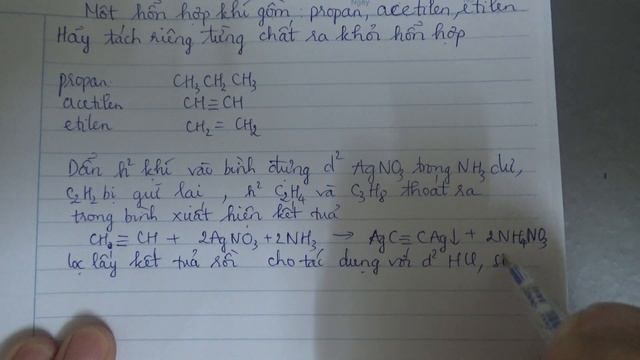 Một hỗn hợp khí gồm: propan, acetilen, etilen
Hãy tách riêng từng chất ra khỏi hỗn hợp
propan CH₃CH₂CH₃
acetilen CH≡CH
etilen CH₂=CH₂
Dẫn h² khí vào bình đựng d² AgNO₃ trong NH₃ dư,
C₂H₂ bị giữ lại, h² C₂H₄ và C₃H₈ thoát ra
trong bình xuất hiện kết tủa
CH≡CH + 2AgNO₃ + 2NH₃ → AgC≡CAg↓ + 2NH₄NO₃
lọc lấy kết tủa rồi cho tác dụng với d² HCl,